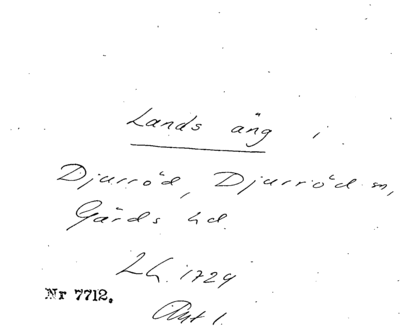 Lands äng i
Djurröd, Djurröd sn,
Gärds hd.
Lh. 1724
Nr 7712.
Akt 1.